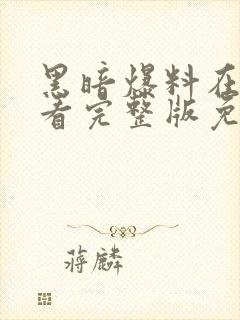 黑暗爆料在
看完整版免
蒋麟